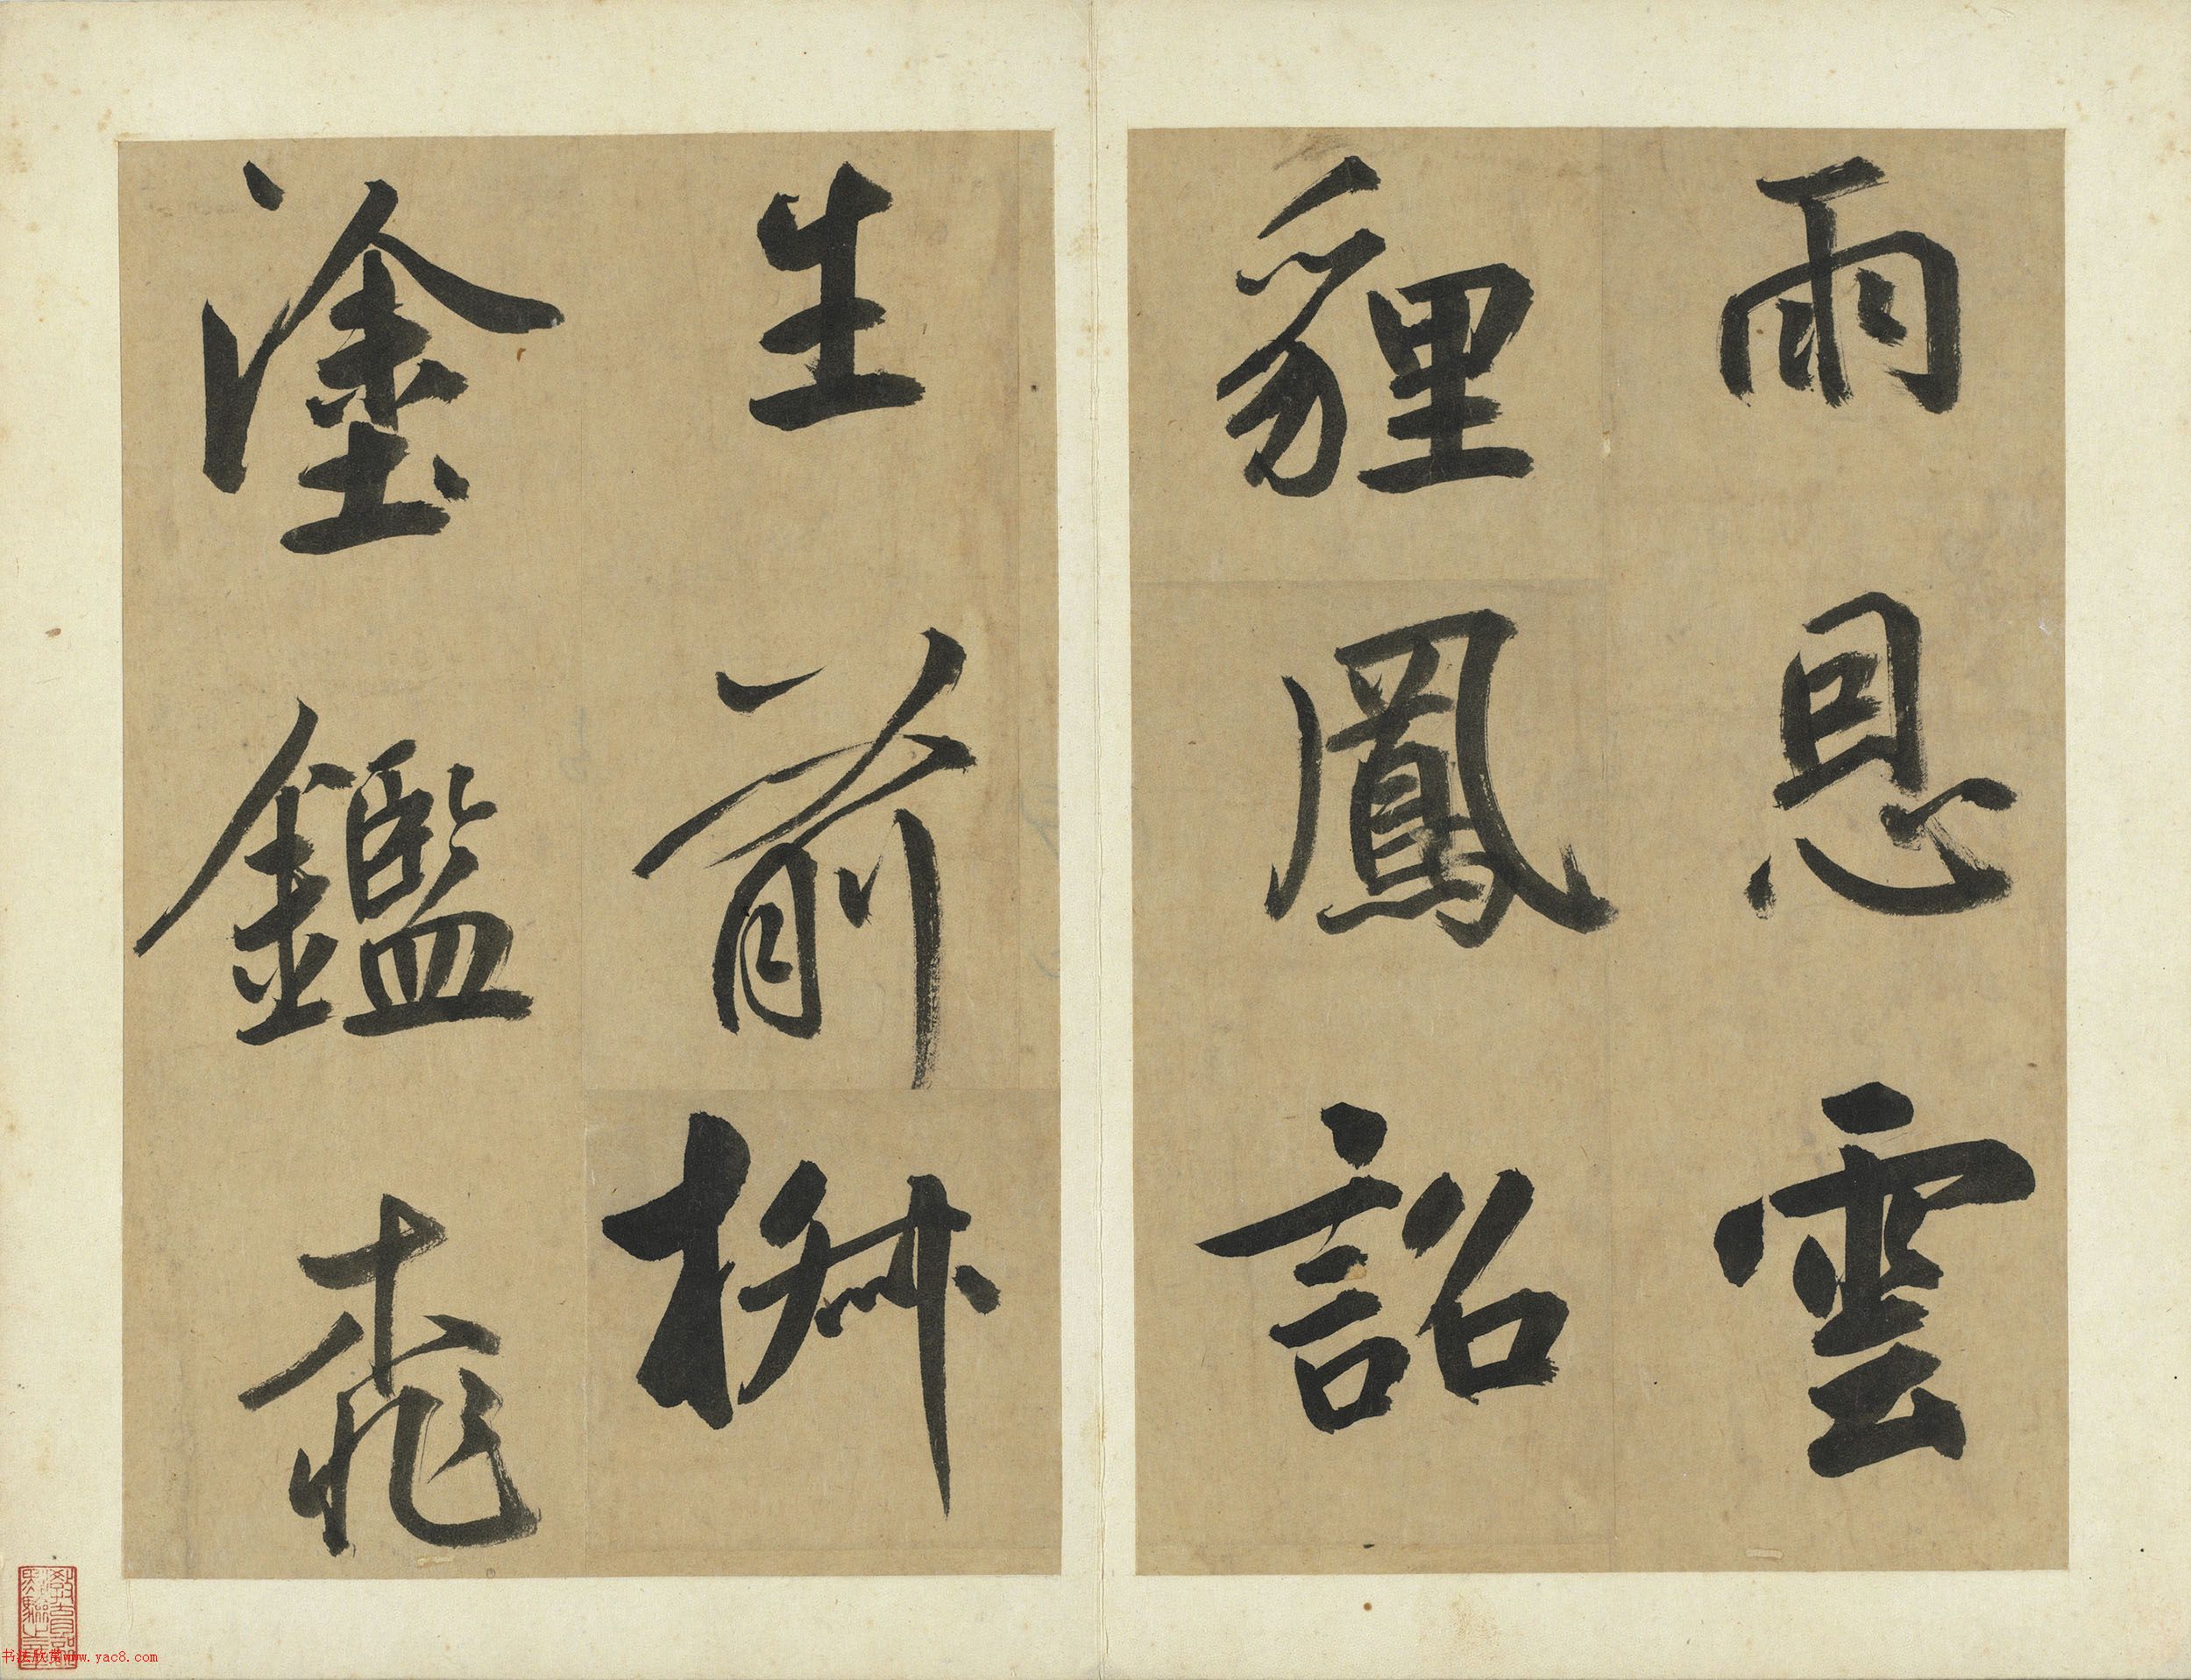 雨恩雲
貍鳳詔
生前
塗鑑
书法欣赏www.yac8.com